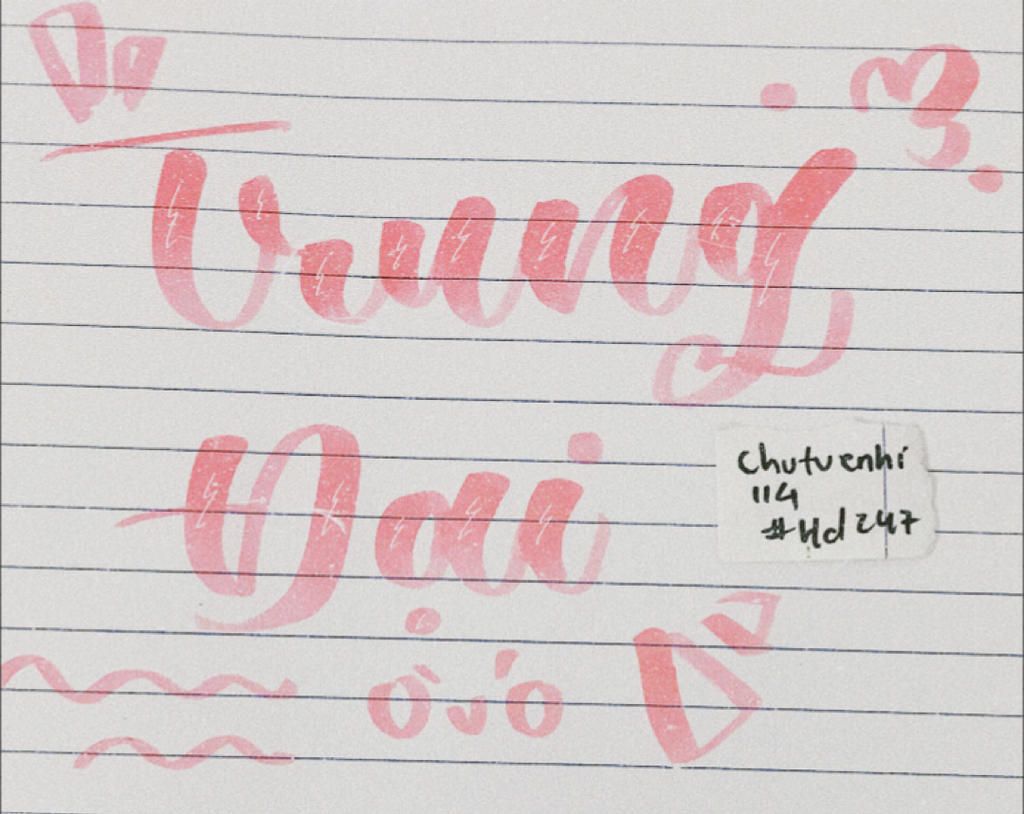 Trung
Đại
chutuenhi
114
#Hd247
òvó